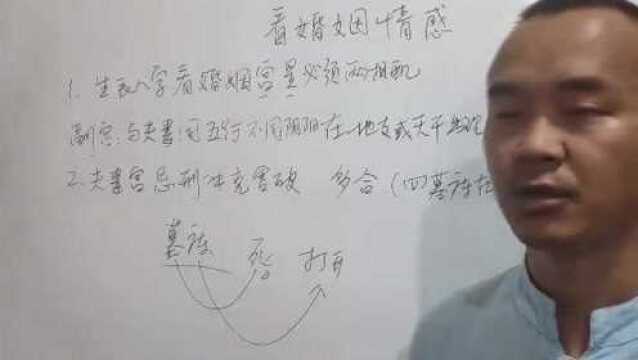 看婚姻情感
1. 生辰八字看婚姻宫星必须两相配
副宫:与夫妻同五行不同阴阳在地支或天干出现
2.夫妻宫忌刑冲克害破 多合(四墓库在
墓库 死 打开